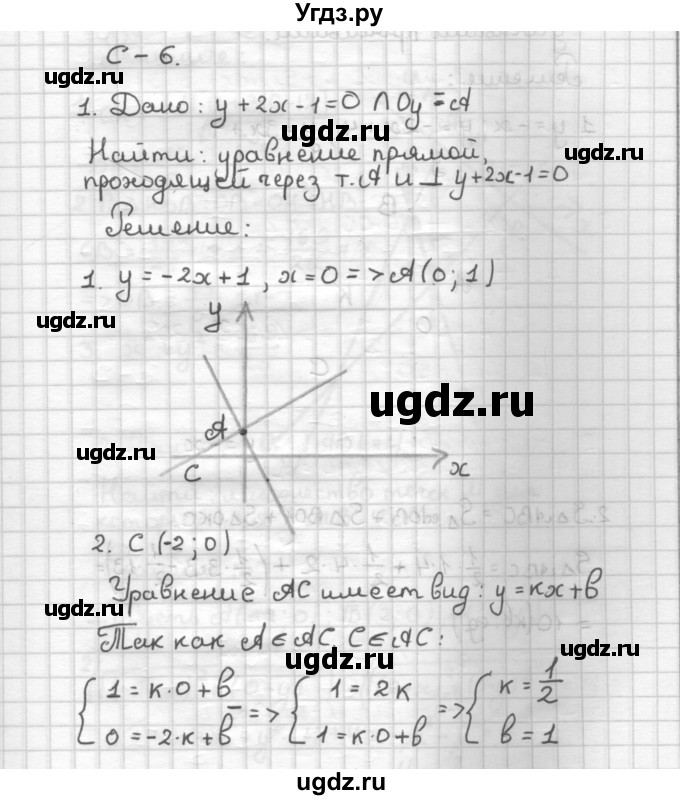 Угдз.ру
С – 6.
ugdz.ru
1. Дано: y + 2x - 1 = 0 ∩ Oy = A
ugdz.ru
Найти: уравнение прямой,
проходящей через т. A и ⊥ y + 2x - 1 = 0
ugdz.ru
Решение:
1. y = -2x + 1, x = 0 => A(0; 1)
ugdz.ru
y
C
ugdz.ru
A
ugdz.ru
C
x
2. C (-2; 0)
ugdz.ru
Уравнение AC имеет вид: y = кx + b
ugdz.ru
Так как A ∈ AC, C ∈ AC:
ugdz.ru
{ 1 = к · 0 + b { 1 = 2к { к = 1/2
- => =>
0 = -2 · к + b 1 = к · 0 + b b = 1
ugdz.ru
ugdz.ru
ugdz.ru